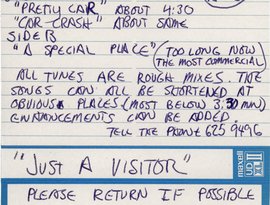 "PRETTY CAR" ABOUT 4:30
"CAR CRASH" ABOUT SAME
SIDE B
"A SPECIAL PLACE" (TOO LONG NOW
THE MOST COMMERCIAL)
ALL TUNES ARE ROUGH MIXES. THE
SONGS CAN ALL BE SHORTENED AT
OBVIOUS PLACES (MOST BELOW 3:30 MIN)
ENHANCEMENTS CAN BE ADDED.
TELL THE PHONE 625 9496
"JUST A VISITOR"
PLEASE RETURN IF POSSIBLE